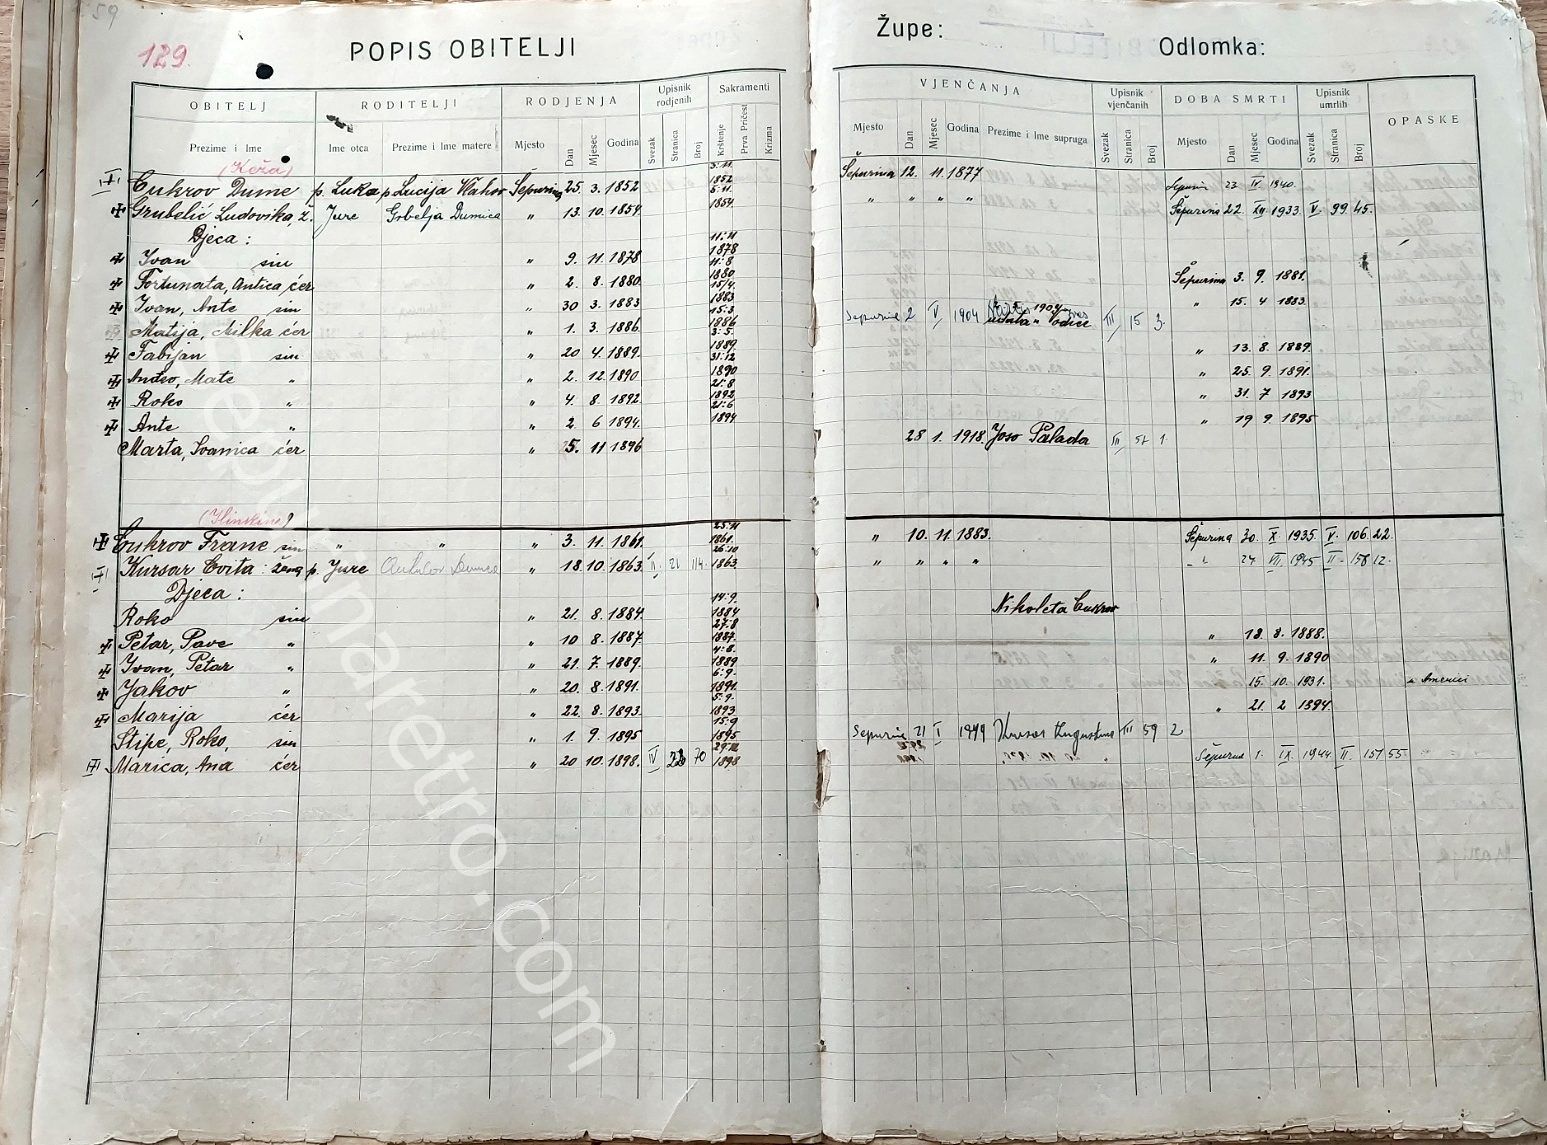 59
129
POPIS OBITELJI
Župe:
Odlomka:
OBITELJ RODITELJI RODJENJA Upisnik rodjenih Sakramenti VJENČANJA Upisnik vjenčanih DOBA SMRTI Upisnik umrlih OPASKE
Prezime i Ime Ime otca Prezime i Ime matere Mjesto Dan Mjesec Godina Svezak Stranica Broj Krštenje Prva Pričest Krizma Mjesto Dan Mjesec Godina Prezime i Ime supruga Svezak Stranica Broj Mjesto Dan Mjesec Godina Svezak Stranica Broj
(Keža) 5.11.
Cukrov Dume p. Luka p. Lucija Šepurina 25. 3. 1852 1852 Šepurina 12. 11. 1877 Šepurina 23 IV 1940.
5.11.
Grubelić Ludovika, ž. Jure Grbelja Dumica „ 13. 10. 1854. 1854. „ „ „ „ Šepurina 22. XII 1933. V 99. 45.
Djeca :
11.11
Ivan sin „ 9. 11. 1878 1878
11.8
Fortunata, Antica ćer „ 2. 8. 1880. 1880 Šepurina 3. 9. 1881.
15/4.
Ivan, Ante sin „ 30 3. 1883 1883 „ 15. 4 1883.
15.3.
Matija, Milka ćer „ 1. 3. 1886. 1886 Šepurine 2 V 1904 1904 udata u Vodice III 15 3.
3.5.
Fabijan sin „ 20 4. 1889. 1889 „ 13. 8. 1889.
31.12
Anđeo, Mate „ „ 2. 12. 1890 1890 „ 25. 9. 1891.
21.8
Roko „ „ 4. 8. 1892 1892 „ 31. 7 1893
21.6
Ante „ „ 2. 6 1894. 1894 „ 19 9. 1895
Marta, Ivanica ćer „ 5. 11 1896 28 1. 1918. Joso Palada III 51 1.
(Hinikine) 25.11
Cukrov Frane sin „ „ „ 3. 11. 1861. 1861. „ 10. 11. 1883. Šepurina 30. X 1935. V. 106. 22.
26.10
Kursar Cvita : žena p. Jure Dumica „ 18. 10. 1863. II. 21 114. 1863. „ „ „ „ „ 24 VII 1945 II 158 12.
Djeca :
14.9.
Roko sin „ 21. 8. 1884. 1884 Nikoleta Cukrov
27.8
Petar, Pave „ „ 10 8. 1887. 1887. „ 18. 8. 1888.
4.8.
Ivan, Petar „ „ 21. 7. 1889. 1889 „ 11. 9. 1890
6.9.
Jakov „ „ 20. 8. 1891. 1891. 15. 10. 1931. u Americi
5.9.
Marija ćer „ 22. 8. 1893. 1893 „ 21. 2 1894.
15.9
Stipe, Roko, sin „ 1. 9. 1895 1895 Sepurine 21 I 1949 Kursar Augustina III 59 2
Marica, Ana ćer „ 20 10. 1898. IV 28 70 1898 Šepurina 1. IX 1944 II. 157 55.
sepurinaretro.com